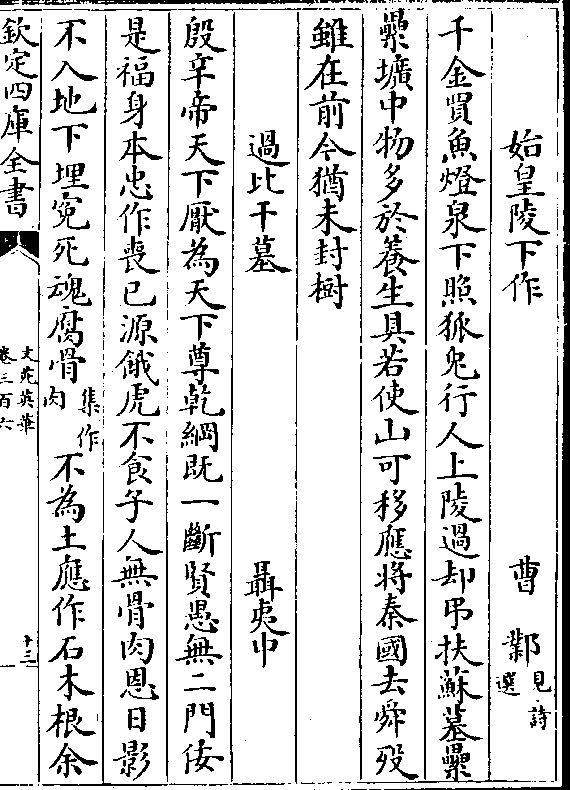 始皇陵下作 曹鄴見詩選
千金買魚燈泉下照狐兔行人上陵過却吊扶蘇墓纍
纍壙中物多於養生具若使山可移應將秦國去舜殁
雖在前今猶未封樹
過比干墓 聶夷中
殷辛帝天下厭為天下尊乾綱既一斷賢愚無二門佞
是福身本忠作喪已源餓虎不食子人無骨肉恩日影
不入地下埋冤死魂腐骨集作肉不為土應作石木根余
欽定四庫全書
文苑英華
卷三百六
十三